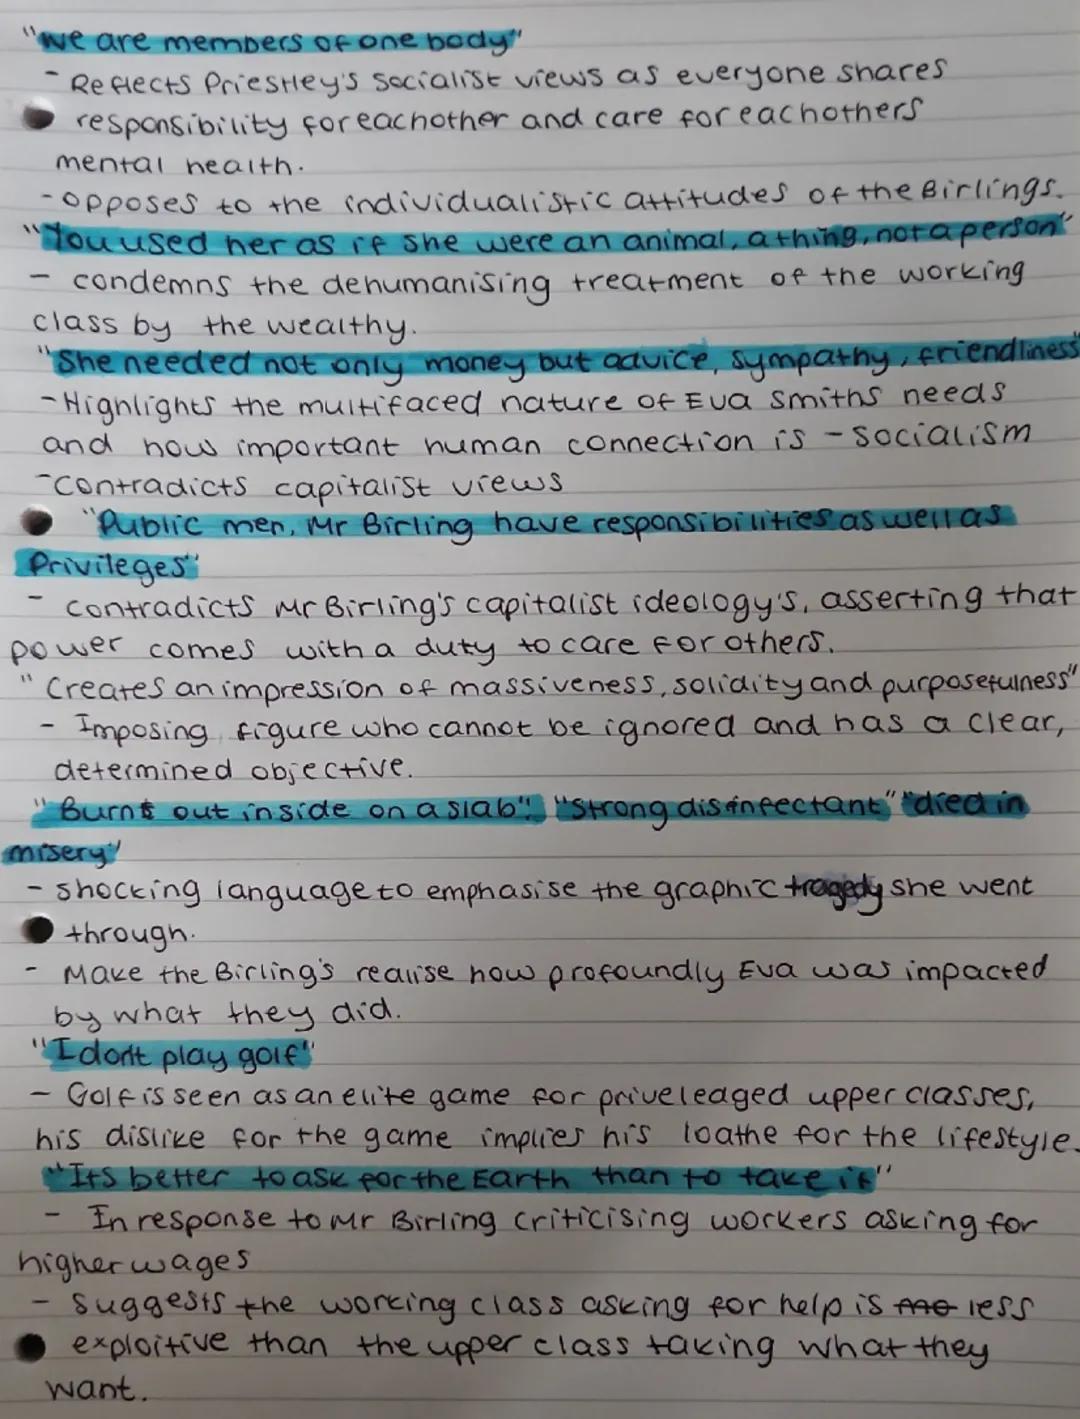 "we are members of one body"
- Reflects Priestley's Socialist views as everyone shares
responsibility for eachother and care for eachothers
mental health.
- opposes to the individualistic attitudes of the Birlings.
"You used her as if she were an animal, a thing, not a person"
- condemns the dehumanising treatment of the working
class by the wealthy.
"She needed not only money but advice, sympathy, friendliness"
- Highlights the multifaced nature of Eva Smiths needs
and how important human connection is - Socialism
- contradicts capitalist views
"Public men, Mr Birling have responsibilities as well as
Privileges"
- contradicts Mr Birling's capitalist ideology's, asserting that
power comes with a duty to care for others.
"Creates an impression of massiveness, solidity and purposefulness"
- Imposing figure who cannot be ignored and has a clear,
determined objective.
"Burnt out inside on a slab" "Strong disinfectant" "died in
misery"
- shocking language to emphasise the graphic tragedy she went
through.
- Make the Birling's realise how profoundly Eva was impacted
by what they did.
"I don't play golf"
- Golf is seen as an elite game for priveleaged upper classes,
his dislike for the game implies his loathe for the lifestyle.
"Its better to ask for the Earth than to take it"
- In response to Mr Birling criticising workers asking for
higher wages
- Suggests the working class asking for help is less
exploitive than the upper class taking what they
want.